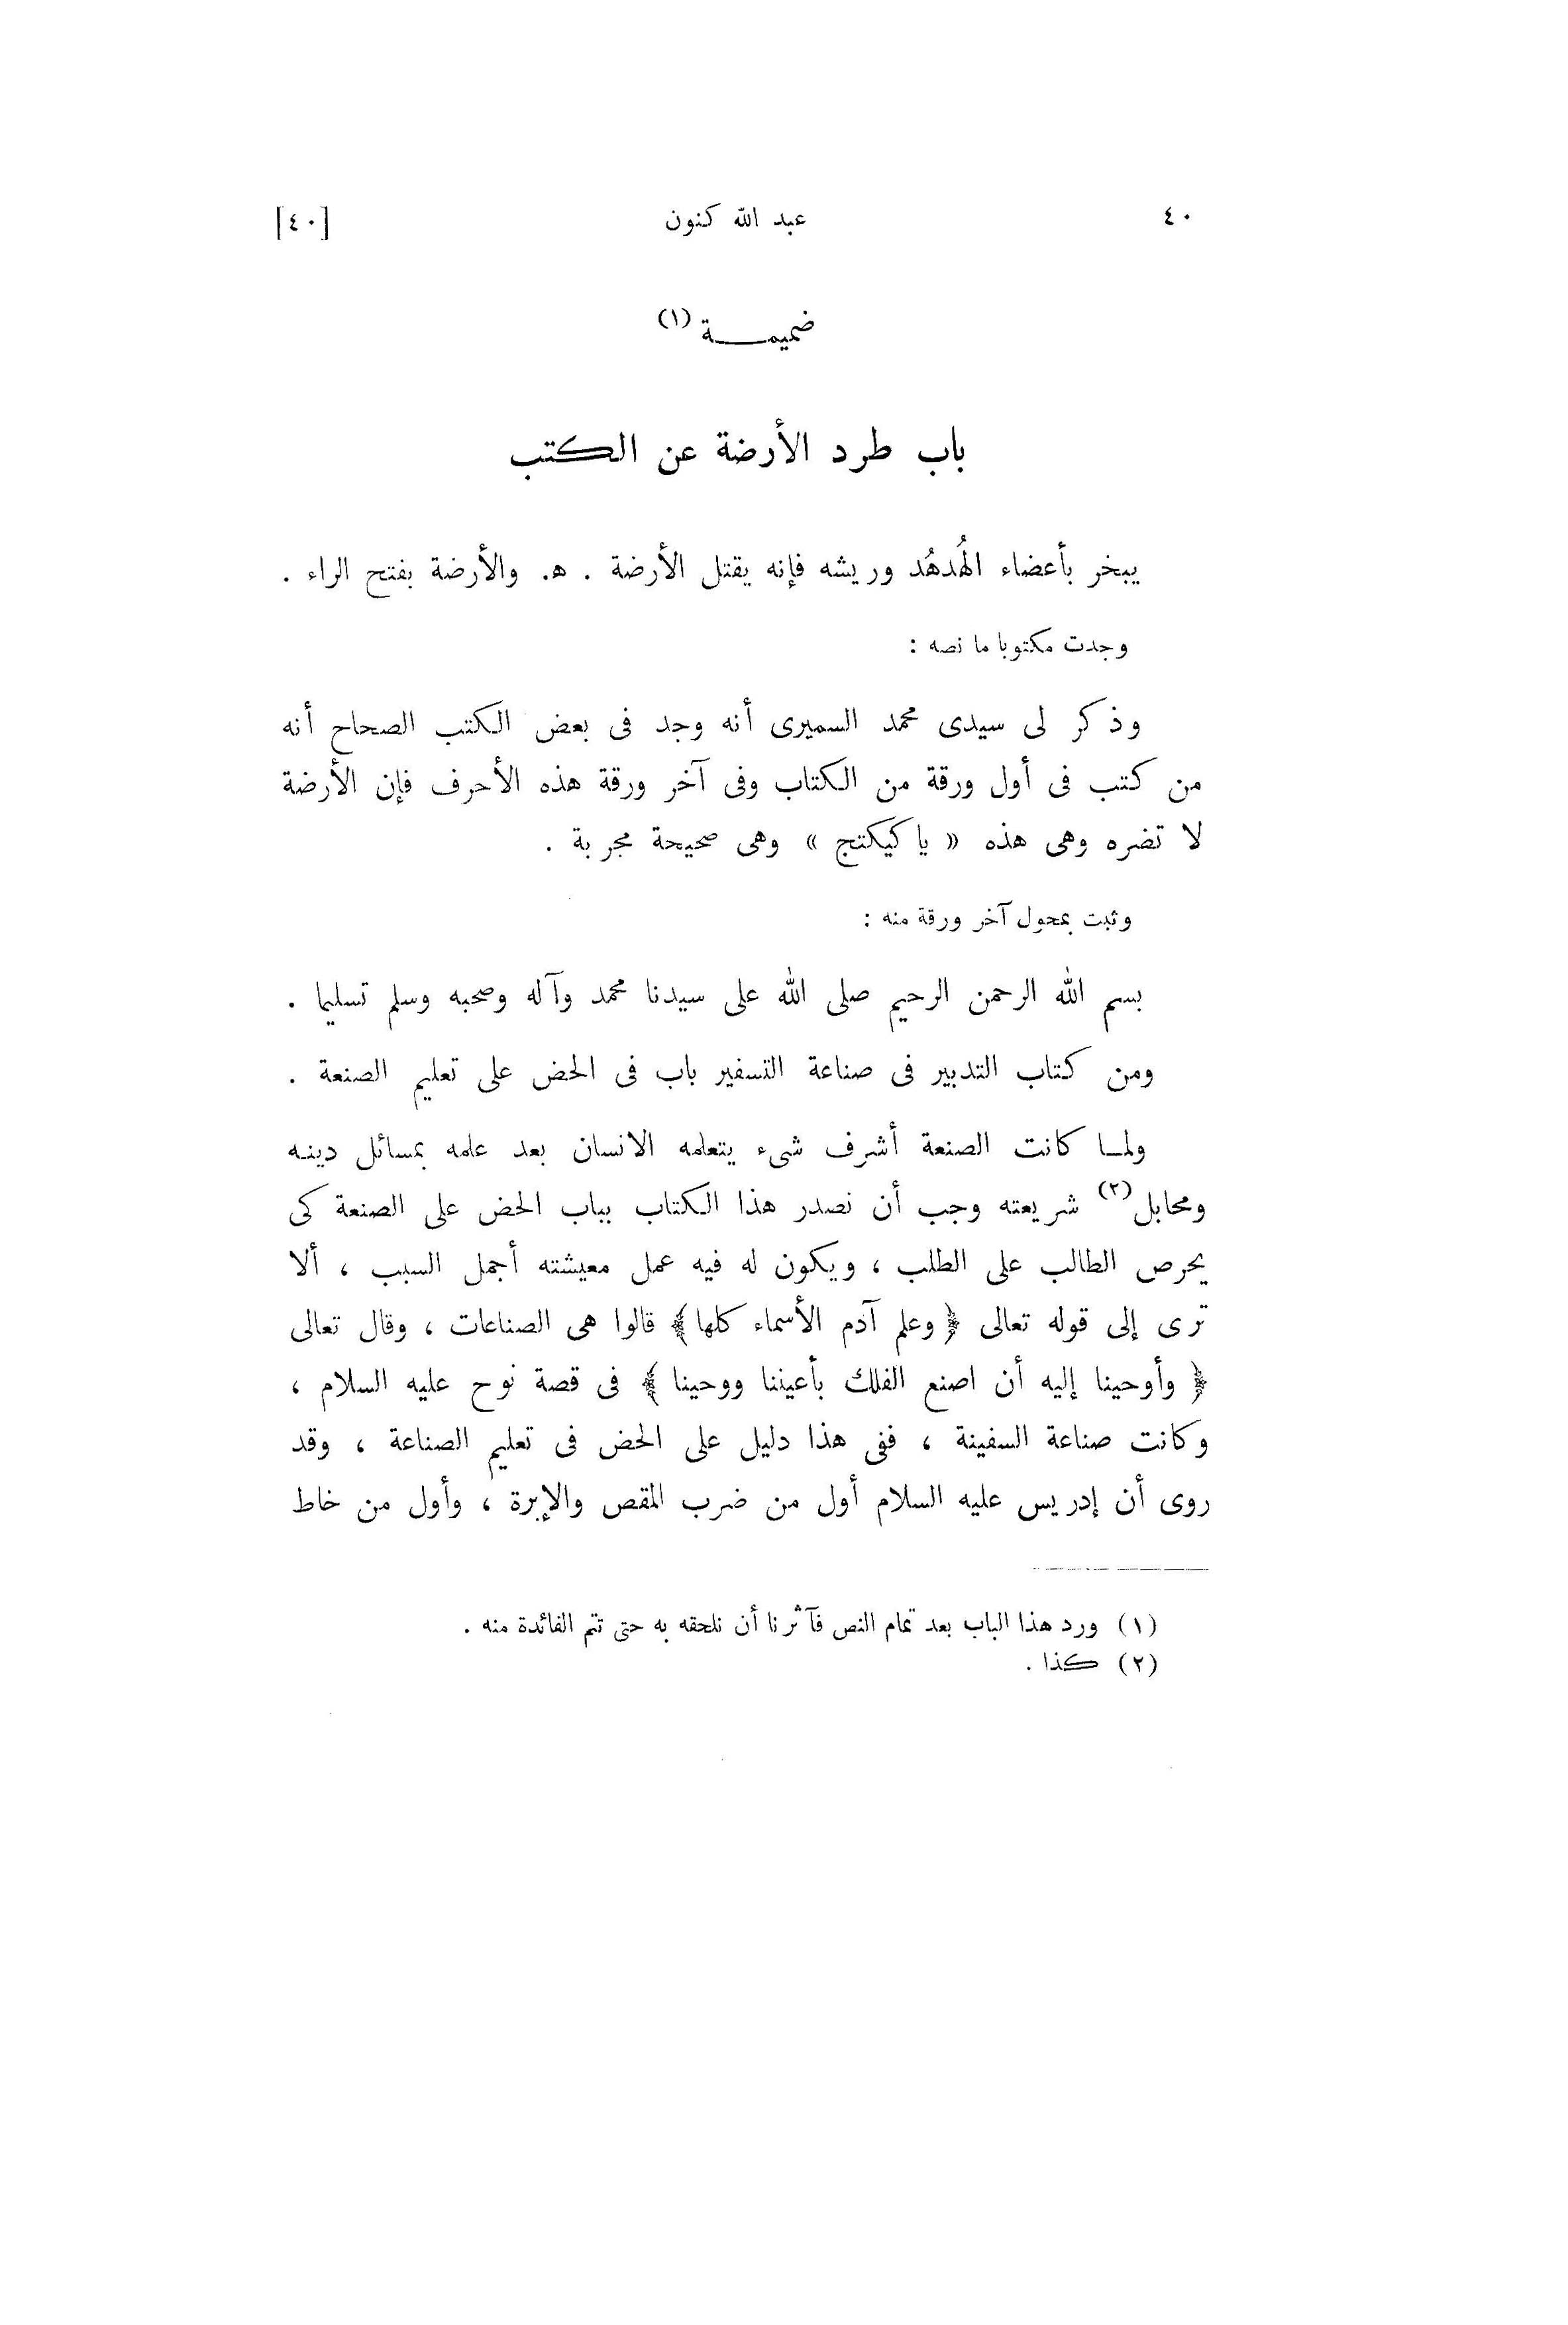 ٤٠ عبد الله كنون [٤٠]
ضميمـــــة (١)
باب طرد الأرضة عن الكتب
يبخر بأعضاء الهُدهُد وريشه فإنه يقتل الأرضة . ه. والأرضة بفتح الراء .
وجدت مكتوبا ما نصه :
وذكر لى سيدى محمد السميرى أنه وجد فى بعض الكتب الصحاح أنه
من كتب فى أول ورقة من الكتاب وفى آخر ورقة هذه الأحرف فإن الأرضة
لا تضره وهى هذه « يا كيكتج » وهى صحيحة مجربة .
وثبت بمحول آخر ورقة منه :
بسم الله الرحمن الرحيم صلى الله على سيدنا محمد وآله وصحبه وسلم تسليما .
ومن كتاب التدبير فى صناعة التسفير باب فى الحض على تعليم الصنعة .
ولمـا كانت الصنعة أشرف شىء يتعلمه الانسان بعد علمه بمسائل دينـه
ومحابل (٢) شريعته وجب أن نصدر هذا الكتاب بباب الحض على الصنعة كى
يحرص الطالب على الطلب ، ويكون له فيه عمل معيشته أجمل السبب ، ألا
ترى إلى قوله تعالى ﴿ وعلم آدم الأسماء كلها ﴾ قالوا هى الصناعات ، وقال تعالى
﴿ وأوحينا إليه أن اصنع الفلك بأعيننا ووحينا ﴾ فى قصة نوح عليه السلام ،
وكانت صناعة السفينة ، ففى هذا دليل على الحض فى تعليم الصناعة ، وقد
روى أن إدريس عليه السلام أول من ضرب المقص والإبرة ، وأول من خاط
(١) ورد هذا الباب بعد تمام النص فآثرنا أن نلحقه به حتى تتم الفائدة منه .
(٢) كذا .